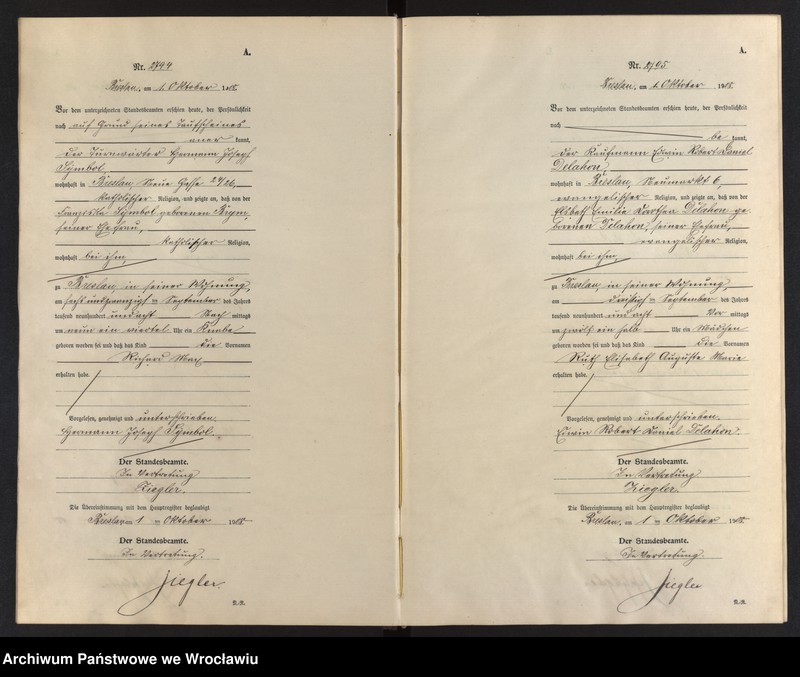 A.
Nr. 2794
Breslau, am 1. Oktober 1908.
Vor dem unterzeichneten Standesbeamten erschien heute, der Persönlichkeit
nach auf Grund seines Taufscheines
aner kannt,
der Hermann Joseph
Symbol
wohnhaft in Breslau, Neue Gasse
katholischer Religion, und zeigte an, daß von der
Symbol geborenen
seiner Ehefrau,
katholischer Religion,
wohnhaft bei ihm,
zu Breslau, in seiner Wohnung,
am sechsundzwanzigsten September des Jahres
tausend neunhundert und acht Nach mittags
um neun ein viertel Uhr ein Knabe
geboren worden sei und daß das Kind die Vornamen
Richard Max
erhalten habe.
Vorgelesen, genehmigt und unterschrieben.
Hermann Joseph Symbol.
Der Standesbeamte.
In Vertretung
Ziegler.
Die Übereinstimmung mit dem Hauptregister beglaubigt
Breslau, am 1 ten Oktober 1908
Der Standesbeamte.
In Vertretung.
Ziegler.
A.
Nr. 2795
Breslau, am 1. Oktober 1908.
Vor dem unterzeichneten Standesbeamten erschien heute, der Persönlichkeit
nach
be kannt,
der Kaufmann Edwin Robert Daniel
Delahon,
wohnhaft in Breslau, Neumarkt 6,
evangelischer Religion, und zeigte an, daß von der
Elsbeth Emilie Dorothea Delahon ge-
borenen Delahon, seiner Ehefrau,
evangelischer Religion,
wohnhaft bei ihm,
zu Breslau, in seiner Wohnung,
am dreißigsten September des Jahres
tausend neunhundert und acht Vor mittags
um zwölf ein halb Uhr ein Mädchen
geboren worden sei und daß das Kind die Vornamen
Ruth Elisabeth Auguste Marie
erhalten habe.
Vorgelesen, genehmigt und unterschrieben.
Edwin Robert Daniel Delahon.
Der Standesbeamte.
In Vertretung
Ziegler.
Die Übereinstimmung mit dem Hauptregister beglaubigt
Breslau, am 1 ten Oktober 1908
Der Standesbeamte.
In Vertretung.
Ziegler
Archiwum Państwowe we Wrocławiu